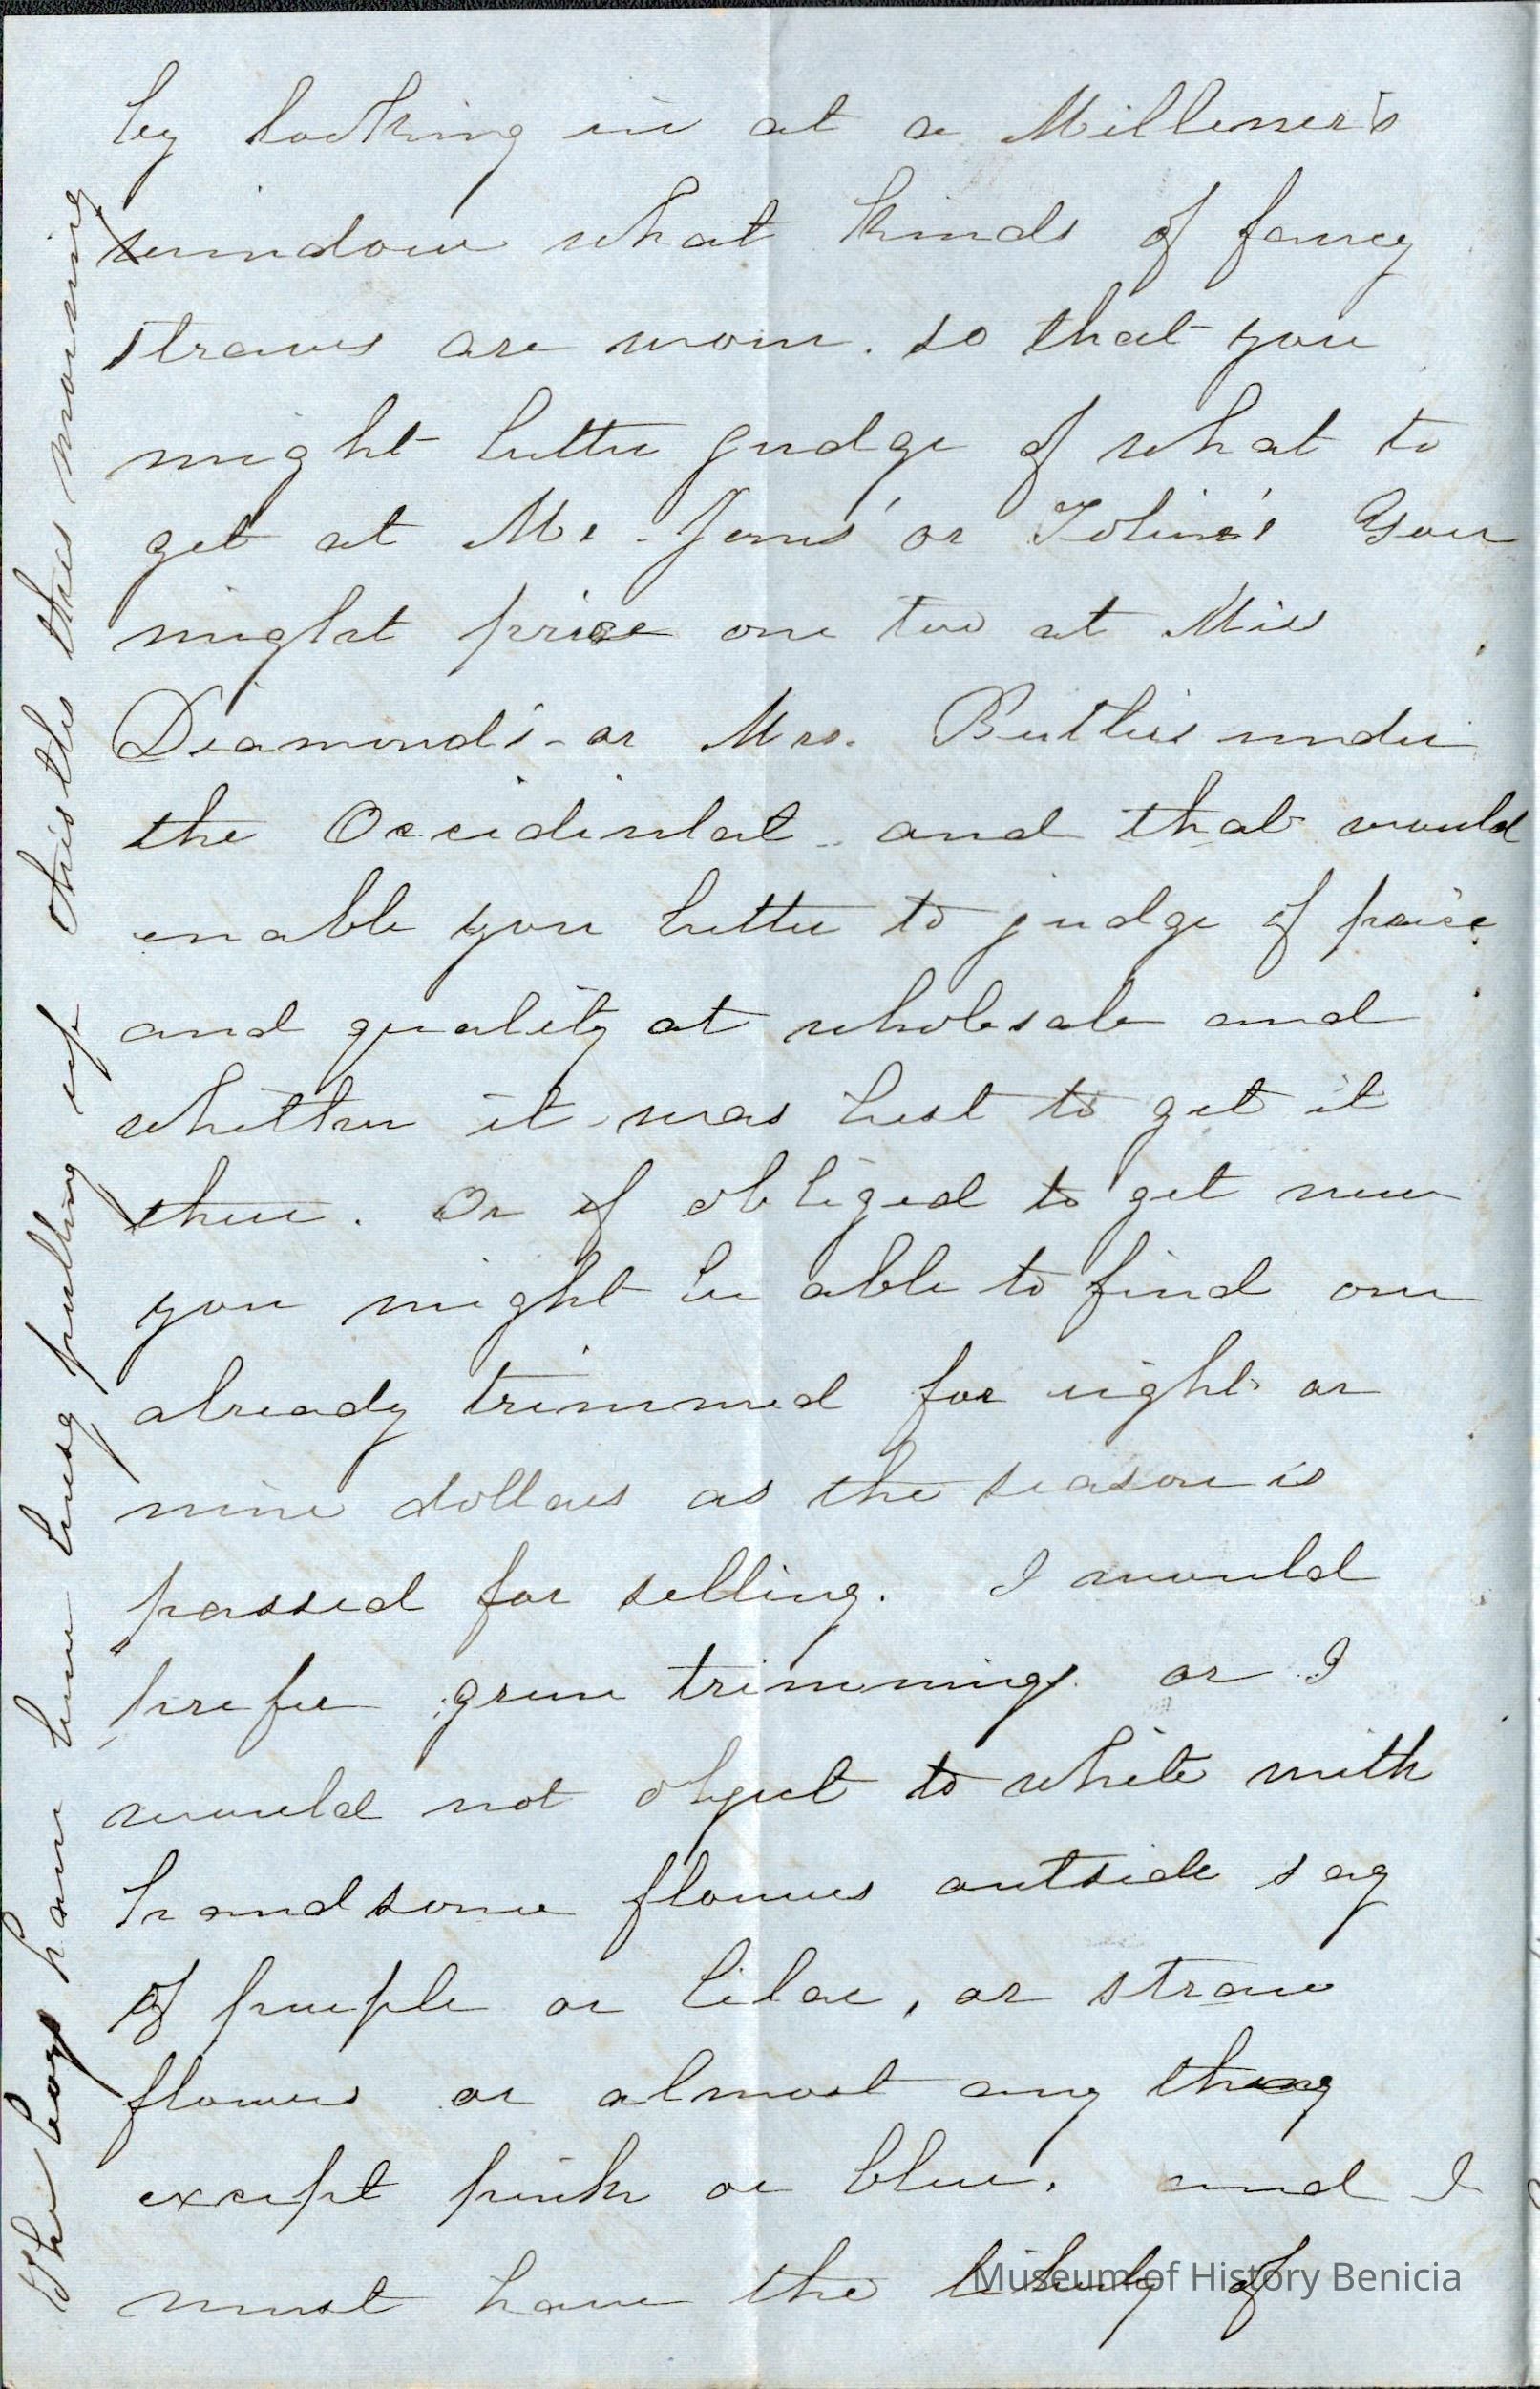 by looking in at a Milliner's
window what kinds of fancy
straws are worn. so that you
might better judge of what to
get at Mr. Jones' or Tobin's You
might price one too at Miss
Diamond's - or Mrs. Butler's under
the Occidental - and that would
enable you better to judge of price
and quality at wholesale and
whether it was best to get it
there. Or if obliged to get new
you might be able to find one
already trimmed for eight or
nine dollars as the season is
passed for selling. I would
prefer green trimmings or I
would not object to white with
handsome flowers outside say
of purple or lilac, or straw
flowers or almost any thing
except pink or blue. and I
must have the liberty of
The boys have been busy pulling up thistles this morning
Museum of History Benicia